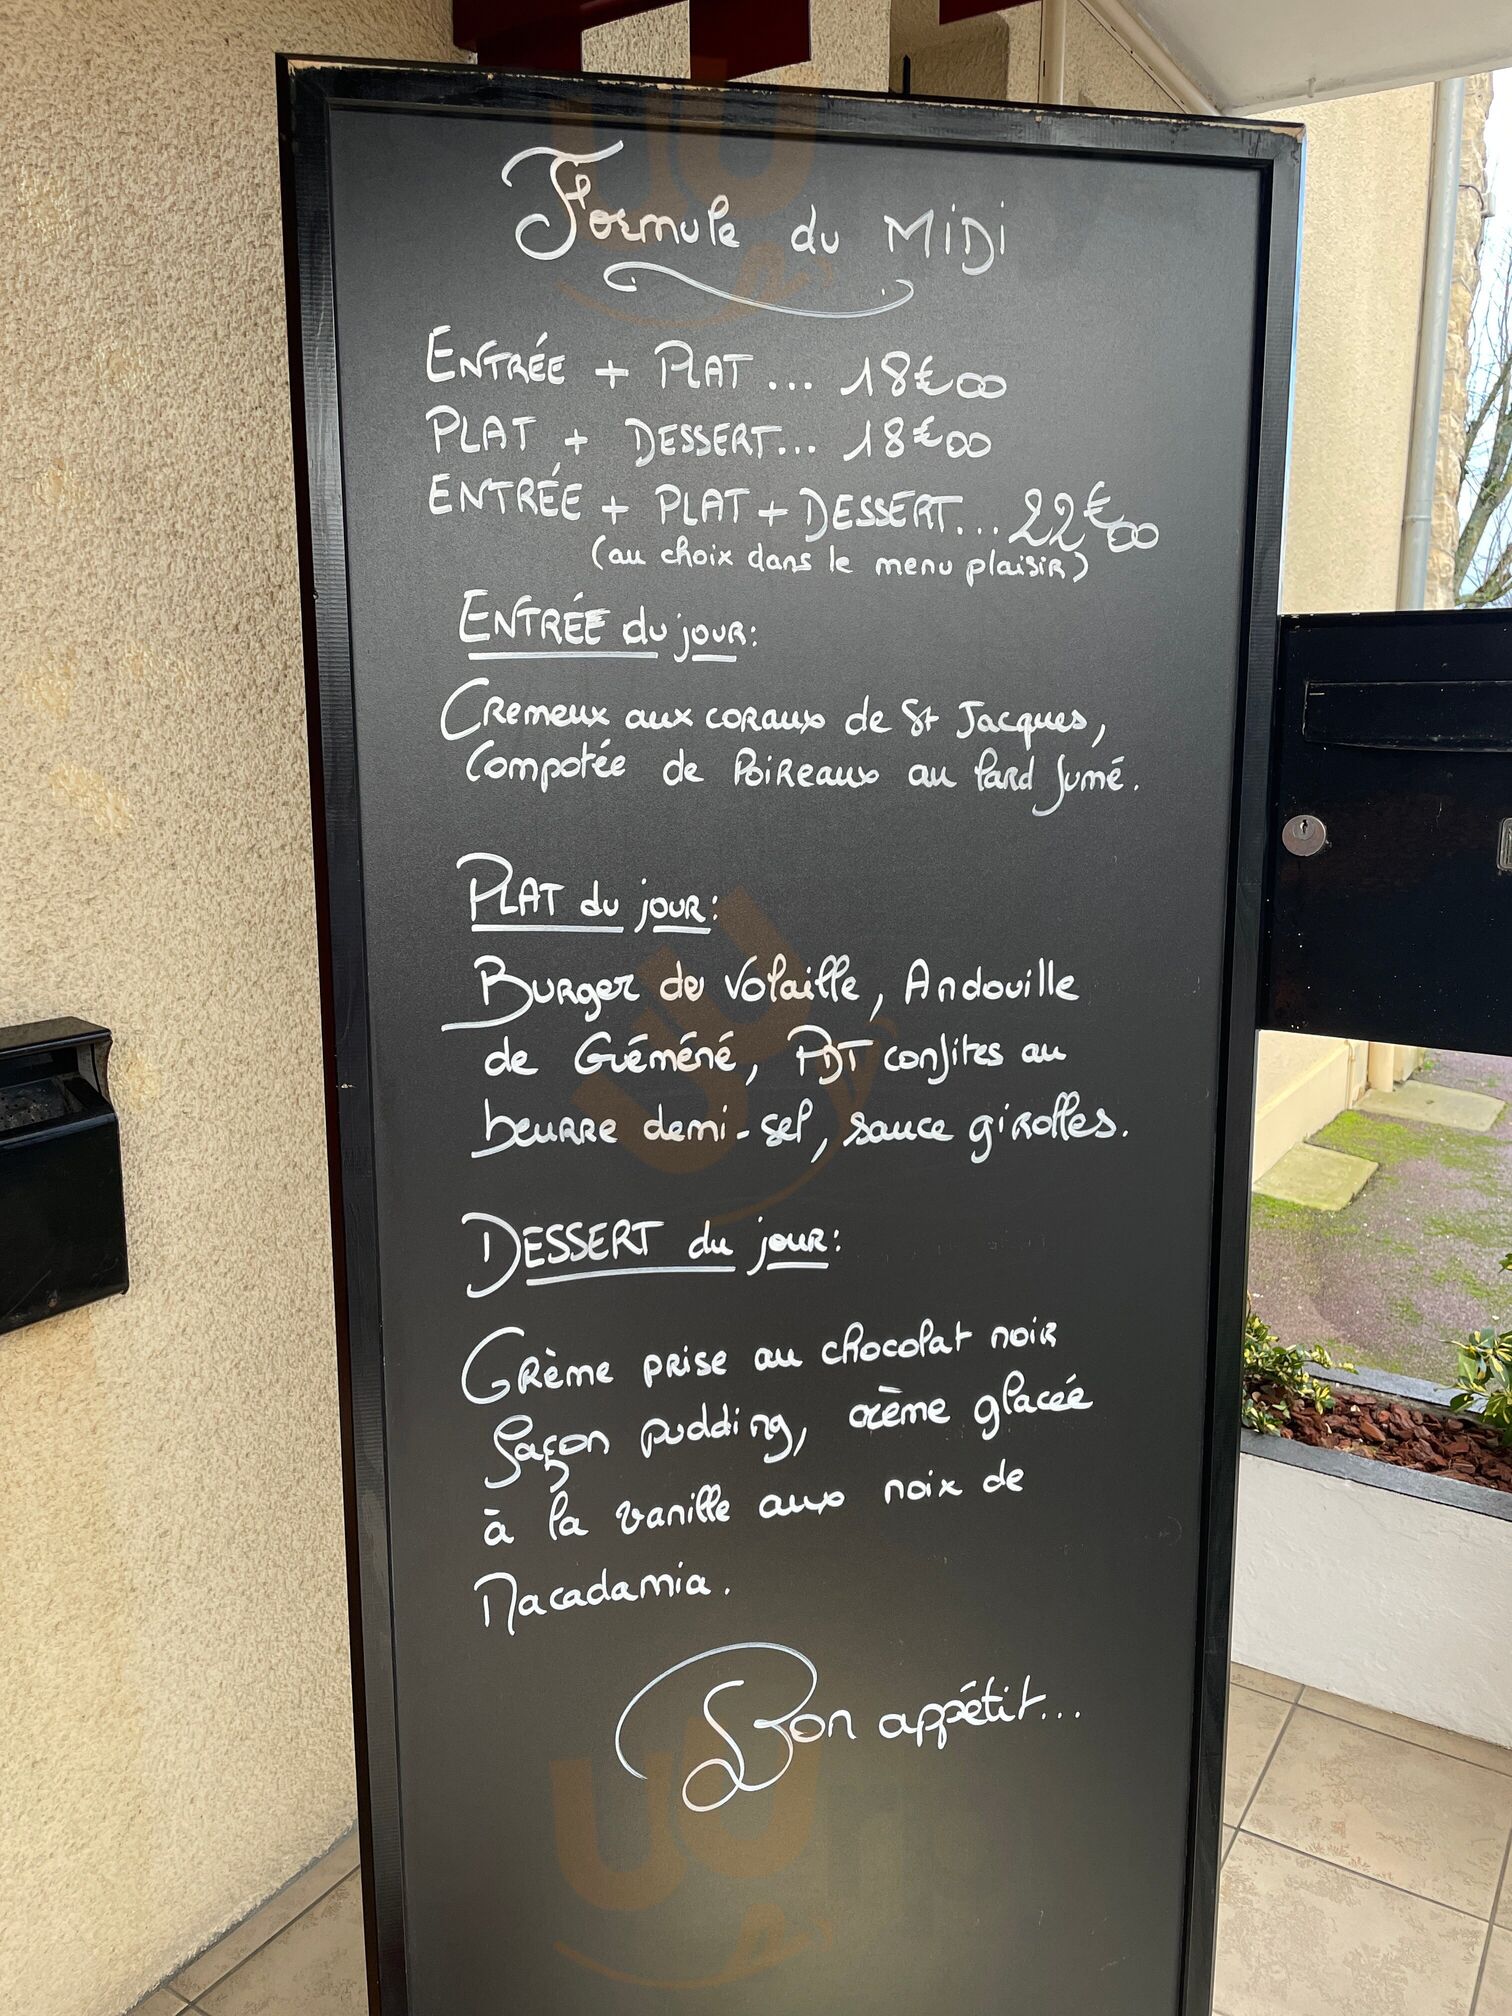 Formule du MiDi
ENTRÉE + PLAT ... 18€00
PLAT + DESSERT... 18€00
ENTRÉE + PLAT + DESSERT... 22€00
(au choix dans le menu plaisir)
ENTRÉE du jour:
Cremeux aux coraux de St Jacques,
Compotée de Poireaux au lard fumé.
PLAT du jour:
Burger de Volaille, Andouille
de Guéméné, PDT confites au
beurre demi-sel, sauce girolles.
DESSERT du jour:
Crème prise au chocolat noir
façon pudding, crème glacée
à la vanille aux noix de
Macadamia.
Bon appétit...